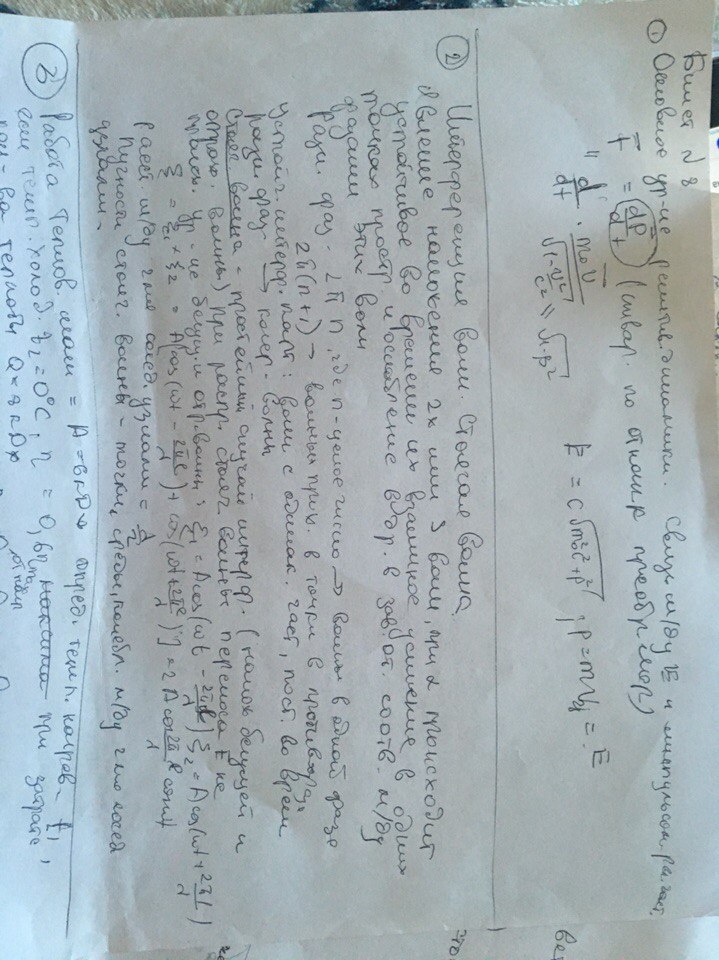 Билет N 8
① Основное ур-ние релятив. динамики. Связь м/ду E и импульсом рел. част.
F = (dP/dt) (инвар. по отнош к преобр
" d/dt · m₀v/√1-v²/c² " √1-β²
E = c√m₀²c²+p² ; p = mv
② Интерференция волн. Стоячая волна
Явление наложения 2х или 3 волн, при к происходит
устойчивое во времени их взаимное усиление в одних
точках простр и ослабление в др. в зав. от. соотн. м/ду
фазами этих волн
разн. фаз - 2πn, где n-целое число → волны в одной фазе
2π(n+1) → волны прих. в точки в противофазе
устойч. интерф. карт: волн с одинак. част, пост. во врем
разн. фаз → когер. волны
Стояч волна - простейший случай интерф. (налож бегущей и
отраж. волны) При распр. стояч волны переноса E не
происх. Ур-ние бегущ и отр. волны: ξ₁ = A cos(ωt - 2πx/λ) ξ₂ = A cos(ωt + 2πx/λ)
ξ = ξ₁ + ξ₂ = A[cos(ωt - 2πx/λ) + cos(ωt + 2πx/λ)] = 2A cos 2πx/λ cos ωt
расст м/ду 2мя сосед узлами = λ/2
Пучности стояч. волны - точки, среды, колебл. м/ду 2мя сосед
узлами.
③ Работа теплов. маш = A = 6 кДж опред. темп. нагрев- t₁,
если темп. холод. t₂ = 0°C, η = 0,6η максима при затрате
кол-ва теплоты Q = 8 кДж